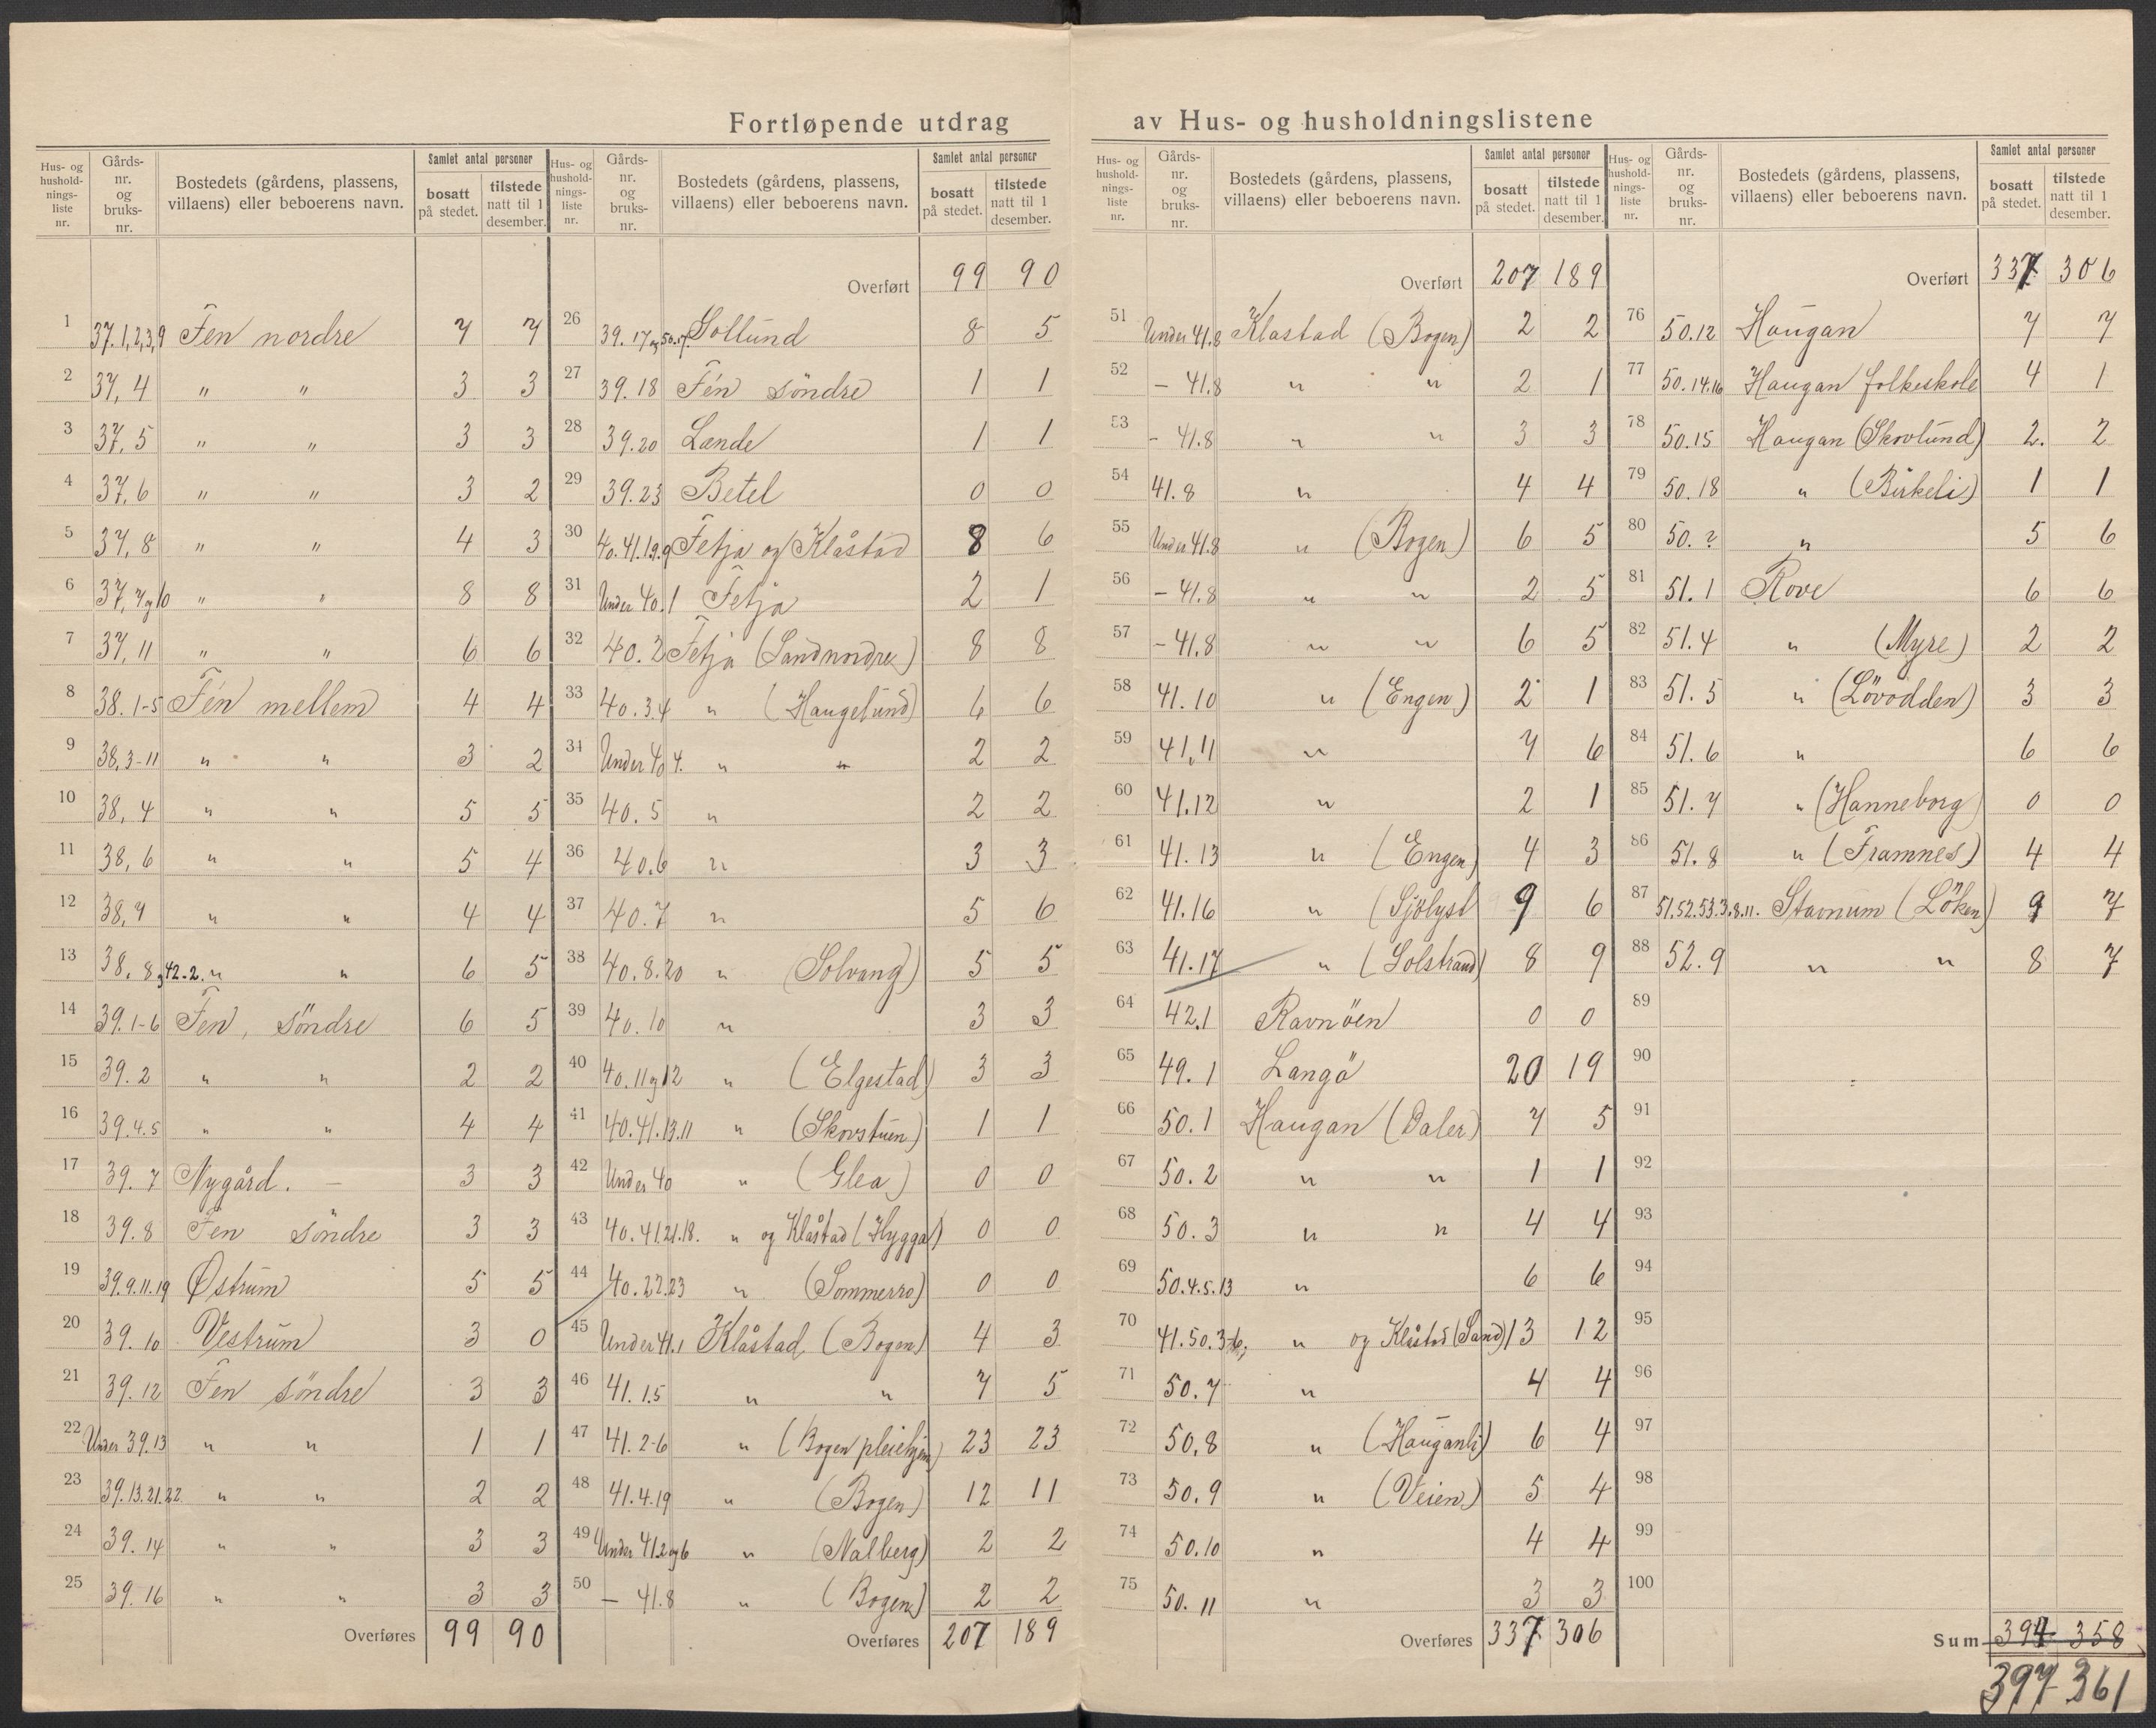 Fortløpende utdrag av Hus- og husholdningslistene
Hus- og husholdnings-liste nr. Gårds-nr. og bruks-nr. Bostedets (gårdens, plassens, villaens) eller beboerens navn. Samlet antal personer bosatt på stedet. tilstede natt til 1 desember.
1 37.1,2,3,9 Fen nordre 7 7
2 37,4 " " 3 3
3 37,5 " " 3 3
4 37,6 " " 3 2
5 37,8 " " 4 3
6 37,7 og 10 " " 8 8
7 37,11 " " 6 6
8 38.1-5 Fén mellem 4 4
9 38,3-11 " " 3 2
10 38,4 " " 5 5
11 38,6 " " 5 4
12 38,7 " " 4 4
13 38.8 og 42-2. " " 6 5
14 39.1-6 Fen, söndre 6 5
15 39.2 " " 2 2
16 39.4.5 " " 4 4
17 39.7 Nygård. – 3 3
18 39.8 Fen söndre 3 3
19 39.9.11.19 Østrum 5 5
20 39.10 Vestrum 3 0
21 39.12 Fen söndre 3 3
22 Under 39.13 " " 1 1
23 39.13.21.22 " " 2 2
24 39.14 " " 3 3
25 39.16 " " 3 3
Overføres 99 90
Hus- og husholdnings-liste nr. Gårds-nr. og bruks-nr. Bostedets (gårdens, plassens, villaens) eller beboerens navn. Samlet antal personer bosatt på stedet. tilstede natt til 1 desember.
Overført 99 90
26 39.17 og 50.17. Sollund 8 5
27 39.18 Fén söndre 1 1
28 39.20 Lande 1 1
29 39.23 Betel 0 0
30 40.41.1.9.9 Fetja og Klåstad 8 6
31 Under 40.1 Fetja 2 1
32 40.2 Fetja (Sandnordre) 8 8
33 40.3.4 " (Haugelund) 6 6
34 Under 40 4. " " 2 2
35 40.5 " 2 2
36 40.6 " 3 3
37 40.7 " 5 6
38 40.8.20 " (Solvang) 5 5
39 40.10 " 3 3
40 40.11 og 12 " (Elgestad) 3 3
41 40.41.13.11 " (Skovstuen) 1 1
42 Under 40 " (Glea) 0 0
43 40.41.21.18. " og Klåstad (Hygga) 0 0
44 40.22.23 " (Sommerro) 0 0
45 Under 41.1 Klåstad (Bogen) 4 3
46 41.1.5 " " 7 5
47 41.2-6 " (Bogen pleiehjem) 23 23
48 41.4.19 " (Bogen) 12 11
49 Under 41.2 og 6 " (Nalberg) 2 2
50 – 41.8 " (Bogen) 2 2
Overføres 207 189
Hus- og husholdnings-liste nr. Gårds-nr. og bruks-nr. Bostedets (gårdens, plassens, villaens) eller beboerens navn. Samlet antal personer bosatt på stedet. tilstede natt til 1 desember.
Overført 207 189
51 Under 41.8 Klastad (Bogen) 2 2
52 – 41.8 " " 2 1
53 – 41.8 " " 3 3
54 41.8 " 4 4
55 Under 41.8 " (Bogen) 6 5
56 – 41.8 " " 2 5
57 – 41.8 " " 6 5
58 41.10 " (Engen) 2 1
59 41,11 " 7 6
60 41.12 " 2 1
61 41.13 " (Engen) 4 3
62 41.16 " (Sjölyst 9 6
63 41.17 " (Solstrand) 8 9
64 42.1 Ravnöen 0 0
65 49.1 Langö 20 19
66 50.1 Haugan (Daler) 7 5
67 50.2 " " 1 1
68 50.3 " " 4 4
69 50.4.5.13 " 6 6
70 41.50.3-6, " og Klåstad (Sand) 13 12
71 50.7 " 4 4
72 50,8 " (Hauganli) 6 4
73 50.9 " (Veien) 5 4
74 50.10 " 4 4
75 50.11 " 3 3
Overføres 337 306
Hus- og husholdnings-liste nr. Gårds-nr. og bruks-nr. Bostedets (gårdens, plassens, villaens) eller beboerens navn. Samlet antal personer bosatt på stedet. tilstede natt til 1 desember.
Overført 337 306
76 50.12 Haugan 7 7
77 50.14.16 Haugan folkeskole 4 1
78 50.15 Haugan (Skovlund) 2. 2
79 50.18 " (Birkeli) 1 1
80 50.? " 5 6
81 51.1 Rove 6 6
82 51.4 " (Myre) 2 2
83 51.5 " (Lövodden) 3 3
84 51.6 " 6 6
85 51.7 " (Hanneborg) 0 0
86 51.8 " (Framnes) 4 4
87 51.52.53.3.8.11. Stavnum (Löken) 9 7
88 52.9 " " 8 7
89
90
91
92
93
94
95
96
97
98
99
100
Sum 394 358
397 361